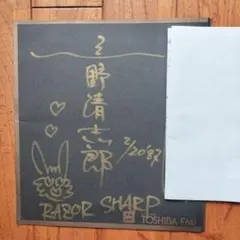 野清志郎
2/20'87
RAZOR SHARP
TOSHIBA EMI